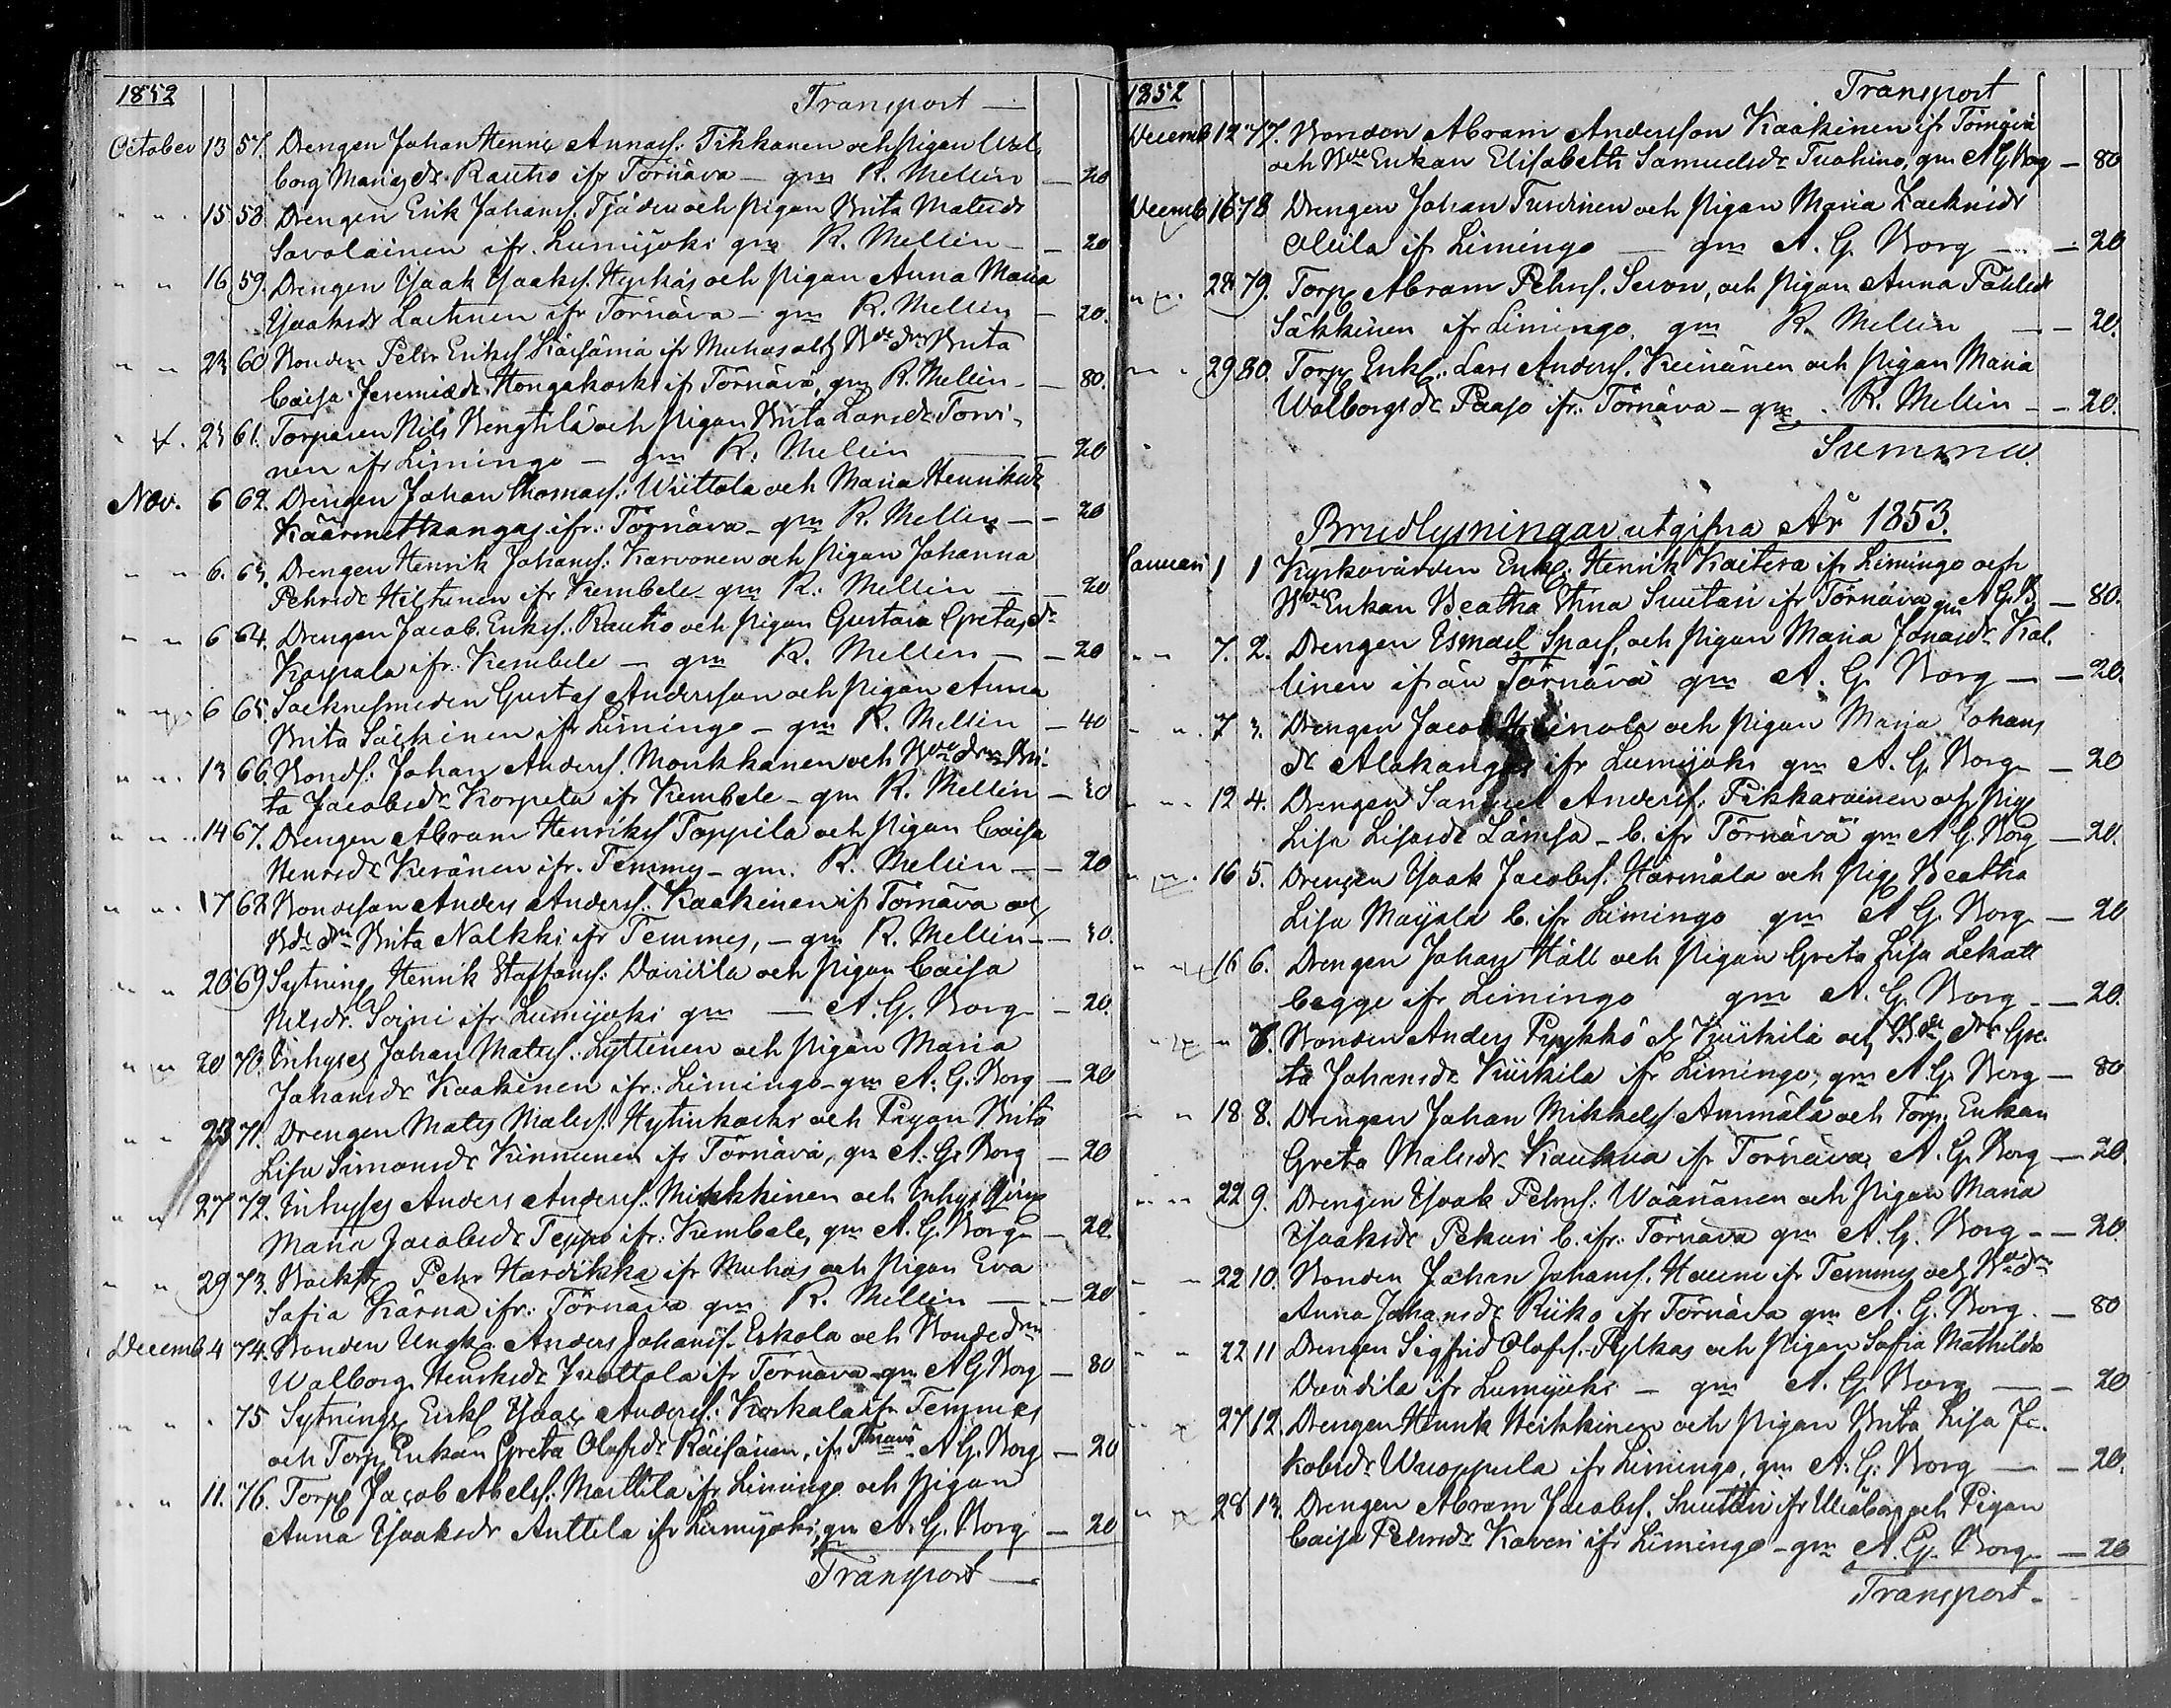 1852
Transport —
October 13 57. Drengen Johan Henric Annasf. Tikkanen och Pigan Wal-
borg Mariæ dr Rautio ifr Törnäva — gm R. Mellin — 20
" " 15 58. Drengen Erik Johansf. Tjäder och Pigan Brita Matsdr
Savolainen ifr. Lumijoki gm R. Mellin — 20
" " 16 59. Drengen Isaak Isaaksf. Hyrkäs och Pigan Anna Maria
Isaaksdr Laitinen ifr Törnäva — gm R. Mellin — 20.
" " 23 60 Bonden Petr Eriksf. ifr Muhos och Bde dr Brita
Caisa Jeremiædr Hongakoski ifr Törnävä, gm R. Mellin — 80.
" 23 61. Torparen Nils Bengtilä och Pigan Brita Larsdr Torvi-
nen ifr Limingo — gm R. Mellin — 20
Nov. 6 62. Drengen Johan Thomasf. Wiittola och Maria Henriksdr
Käärmettkangas ifr. Törnäva — gm R. Mellin — 20
" " 6. 63. Drengen Henrik Johansf. Karvonen och Pigan Johanna
Pehrsdr Hiltunen ifr Kembele gm R. Mellin — 20
" " 6 64. Drengen Jacob Eriksf. Rautio och Pigan Gustava Gretas dr
Korpala ifr. Kembele — gm R. Mellin — 20
" 6 65. Socknesmeden Gustaf Andersson och Pigan Anna
Brita Säkkinen ifr Limingo — gm R. Mellin — 40
" " 13 66. Bondf. Johan Andersf. Monkkanen och Bde dr Bri-
ta Jacobsdr Korpela ifr Kembele — gm R. Mellin —
" " 14 67. Drengen Abram Henriksf Toppila och Pigan Caisa
Henrsdr Keränen ifr. Temmes — gm. R. Mellin — 20
" " 17 68 Bondesonen Anders Andersf. Kaakinen if Törnäva och
Bde dr Brita Nalkki ifr Temmes, — gm R. Mellin —
" " 20 69 Sytning Henrik Staffansf. Davidila och Pigan Caisa
Nilsdr. Soini ifr Lumijoki gm — A. G. Borg — 20.
" 20 70. Inhyses Johan Matsf. Lyttinen och Pigan Maria
Johansdr Kaakinen ifr. Limingo — gm A. G. Borg — 20
" " 23 71. Drengen Mats Matsf. Hytinkoski och Pigan Brita
Lisa Simonsdr Kinnunen ifr Törnävä, gm A. G. Borg — 20
" " 27 72. Inhyses Anders Andersf. Mikkkinen och Inhys. Pig.
Maria Jacobsdr Teppo ifr. Kembele, gm A. G. Borg — 20.
" " 29 73. Petr Hardikka ifr Muhos och Pigan Eva
Safia Kärna ifr. Törnäva gm R. Mellin — 20
Decemb 4 74. Bonden Ungk. Anders Johansf. Eskola och Bonde dr
Walborg Henriksdr Juottola ifr Törnäva — gm A G Borg — 80
" " " 75 Sytningz Enkl Isaac Andersf. Korkala ifr Temmes
och Torp. Enkan Greta Olofsdr Räisänen, ifr Tnävä A. G. Borg — 20
" " 11. 76. Torp. Jacob Abelsf. Marttila ifr Limingo och Pigan
Anna Isaaksdr Anttila ifr Lumijoki, gm A. G. Borg — 20
Transport —
1852
Transport
Decemb 12 77. Bonden Abram Andersson Kaakinen ifr Törnävä
och Bde Enkan Elisabeth Samuelsdr Tuohino, gm A G Borg — 80
Decemb 16 78 Drengen Johan Tuurinen och Pigan Maria Zachrisdr
Alila if Limingo — gm A. G. Borg — 20
" 28 79. Torp. Abram Pehrsf. Servon, och Pigan Anna Påhlsdr
Säkkinen ifr Limingo. gm R. Mellin — 20.
" " 29 80. Torp. Enkl. Lars Andersf. Keinänen och Pigan Maria
Walborgsdr Paaso ifr. Törnäva — gm R. Mellin — 20.
Summa.
Brudlysningar utgifna År 1853.
Januari 1 1 Kyrkovärden Enkl. Henrik Kaitera ifr Limingo och
Bde Enkan Beatha Stina Suutari ifr Törnäva gm A G. B — 80.
" " 7. 2. Drengen Ismael Sparf, och Pigan Maria Jonasdr Kal-
linen ifrån Törnävä gm A. G. Borg — 20.
" " 7 3. Drengen Jacob Heinola och Pigan Maria Johans
dr Alakangas ifr Lumijoki gm A. G. Borg — 20
" " 12 4. Drengen Samuel Andersf. Pikkarainen och Pig.
Lisa Lisasdr Lämsa — b. ifr Törnävä gm A G. Borg — 20.
" 16 5. Drengen Isak Jacobsf. Härmälä och Pig. Beatha
Lisa Maijala b. ifr Limingo gm A G. Borg — 20
" 16 6. Drengen Johan Håll och Pigan Greta Lisa Lekatt
begge ifr Limingo gm A. G. Borg — 20.
" " 7. Bonden Anders Prykkö el. Kiiskilä och Bde dr Gre-
ta Johansdr Kiiskila ifr Limingo, gm A. G. Borg — 80
" " 18 8. Drengen Johan Mikkelsf Ammälä och Torp. Enkan
Greta Matsdr Kaukua ifr Törnäva, A. G. Borg — 20
" " 22 9. Drengen Isaak Pehrsf. Wäänänen och Pigan Maria
Isaaksdr Pekuri b. ifr. Törnäva gm A. G. Borg — 20
" " 22 10. Bonden Johan Johansf. Haume ifr Temmes och Bde dr
Anna Johansdr Riiko ifr Törnäva gm A. G. Borg. — 80
" " 22 11 Drengen Sigfrid Olofsf. Pylkas och Pigan Safia Mathilda
Davidila ifr Lumijoki — gm A. G. Borg — 20
" 27 12. Drengen Henrik Heikkinen och Pigan Brita Lisa Ja-
kobsdr Wuoppula ifr Limingo, gm A. G. Borg — 20.
" 28 13. Drengen Abram Jacobsf. Suutari ifr Uleåborg och Pigan
Caisa Pehrsdr Kaveri ifr Limingo — gm A. G. Borg — 20
Transport.